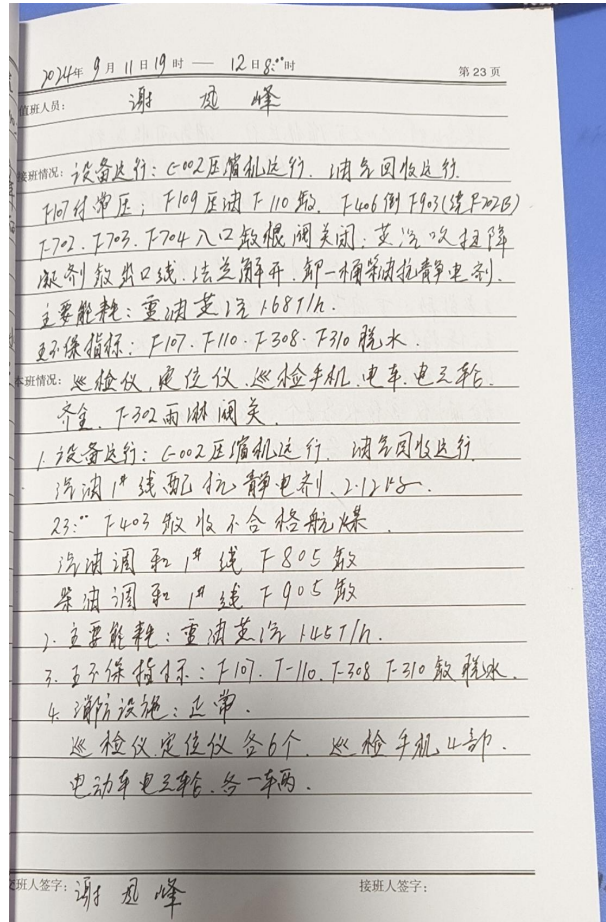 2024年9月11日19时 — 12日8:00时
第23页
值班人员: 谢 凤 峰
接班情况: 设备运行: C-002压缩机运行. 油气回收运行.
T-107付常压; T-109压油T-110敞. T-406倒T-903(续P-702B)
T-702. T-703. T-704入口敞根阀关闭. 蒸汽吹扫降
凝剂敞出口线. 法兰解开. 卸一桶柴油抗静电剂.
主要能耗: 重油蒸汽 1.68T/h.
环保指标: T-107. T-110. T-308. T-310脱水.
本班情况: 巡检仪. 定位仪. 巡检手机. 电车. 电三轮.
齐全. T-302雨淋阀关.
1. 设备运行: C-002压缩机运行. 油气回收运行.
汽油1#线配抗静电剂. 2.12kg.
23:00 T-403敞收不合格航煤.
汽油调和1#线T-805敞
柴油调和1#线T-905敞
2. 主要能耗: 重油蒸汽 1.45T/h.
3. 环保指标: T-107. T-110. T-308 T-310敞脱水.
4. 消防设施: 正常.
巡检仪. 定位仪各6个. 巡检手机4部.
电动车电三轮. 各一车辆.
交班人签字: 谢 凤 峰
接班人签字: